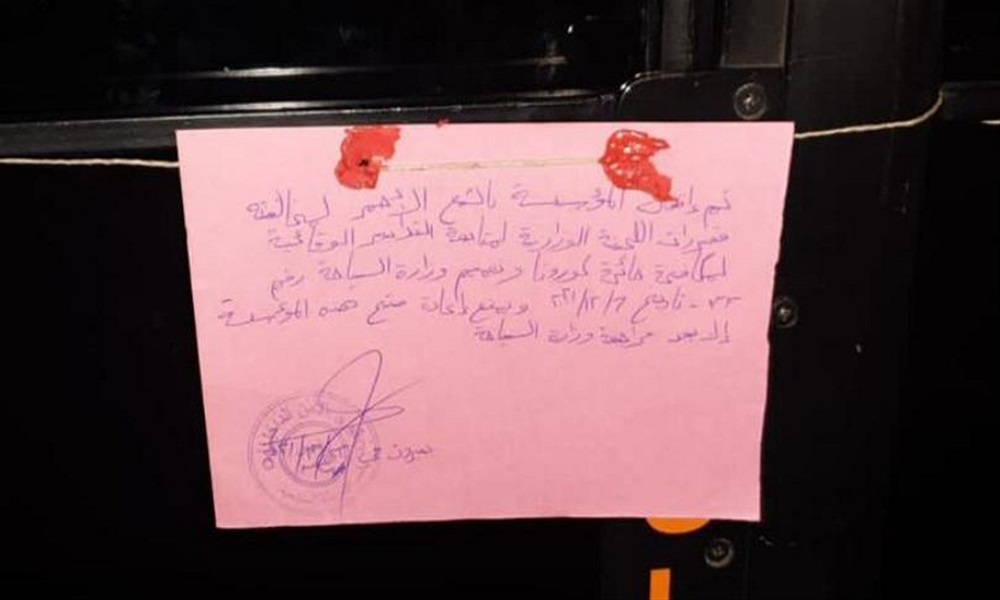 تم إقفال المؤسسة بالشمع الأحمر لمخالفته
مقررات اللجنة الوزارية لمتابعة التدابير الوقائية
لمكافحة جائحة كورونا وتعميم وزارة السياحة رقم
٣٢ - تاريخ ٢٠٢١/١٢/٦ ويمنع إعادة فتح هذه المؤسسة
إلا بعد مراجعة وزارة السياحة
بيروت في